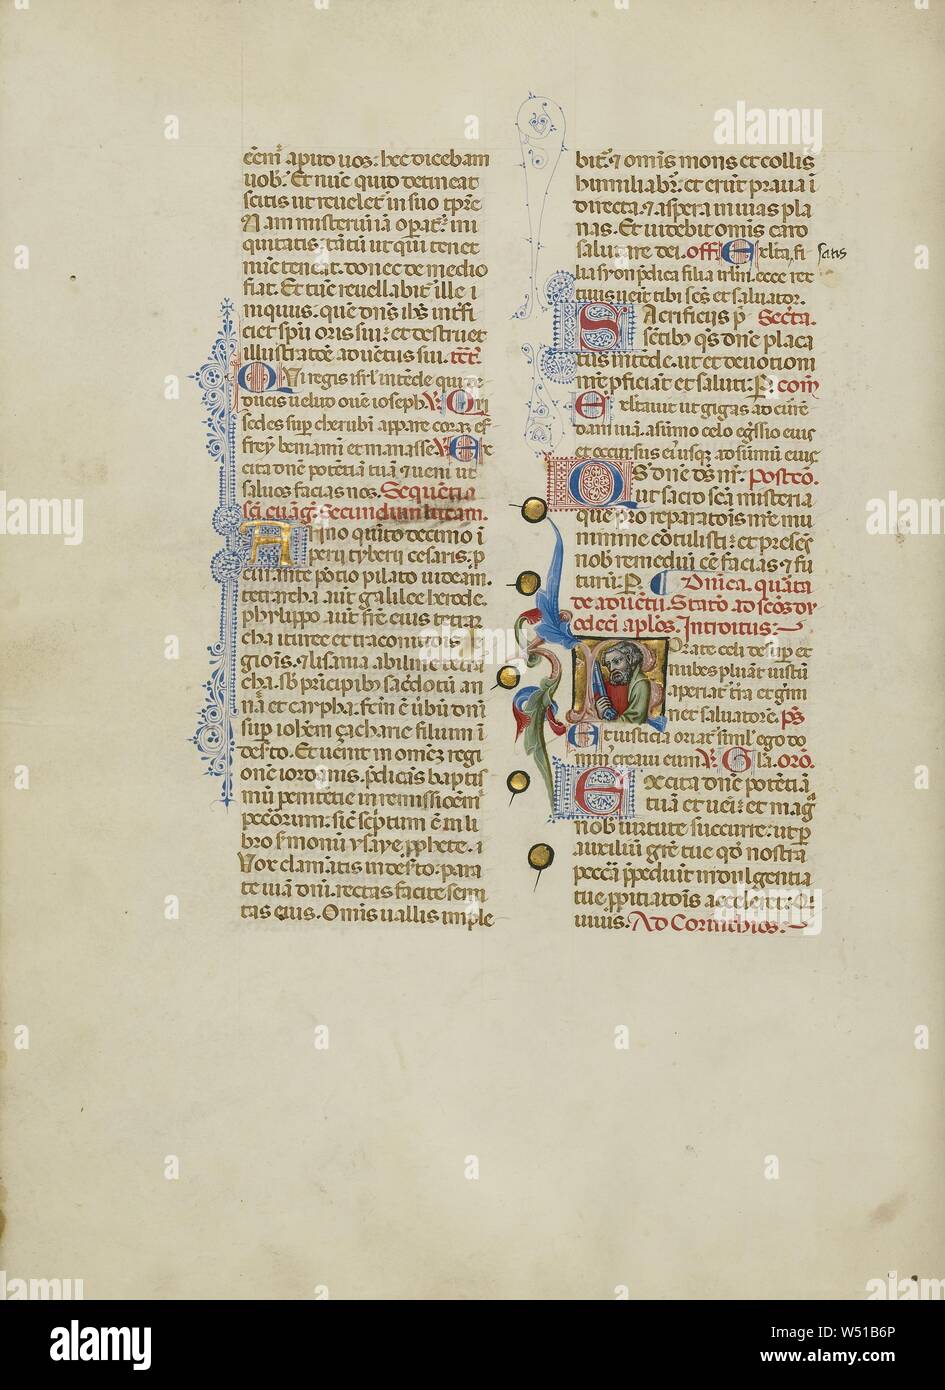 ēem̄ apud uos: hec dicebam
uob̄. Et nūc quid detineat
scitis ut reueletur in suo tp̄re
Nam misteriū iā operat̄ ini
quitatis: tātū ut qui tenet
nūc teneat. donec de medio
fiat. Et tūc reuellabit̄ ille i
niquus. que dn̄s ih̄s intfi
ciet sp̄u oris sui: et destruet
illustratōe aduētus sui. tct̄.
Qvi regis isrl̄ intēde qui de
ducis uelud ouē ioseph. v̄. Qui
sedes sup̄ cherubī appare corā ef
frem beniamī et manasse. v̄. Ex
cita dn̄e potētiā tuā ⁊ ueni ut
saluos facias nos. Sequētia
sc̄i euāḡ. Secundum lucam.
Anno quīto decimo ī
perii tyberii cesaris. p
curante pōtio pilato iudeam.
tetrarcha aut̄ galilee herode.
phylippo aut̄ fr̄e eius tetrar
cha ituree et traconitidis re
giōis. ⁊ lisania abiline tetrar
cha. sb̄ prīncipib̄ sac̄dotū an
na et caypha. fctm̄ ē ūbū dn̄i
sup̄ ioh̄em çacharie filium ī
desto. Et uenit in omēz regi
onē iordanis. p̄dicās baptis
mū penitētie in remissiōem
peccorum: sic̄ sc̄ptum ē in li
bro s̄monū ysaye pp̄hete. i
Vox clamātis in desto: para
te uiā dn̄i. rectas facite semi
tas eius. Omīs uallis imple
bit̄. ⁊ omīs mons et collis
humiliabit̄. et erūt praua ī
directa. ⁊ aspera in uias pla
nas. Et uidebit omīs caro
salutare dei. offr̄ Exlta, fi satis
lia syon p̄dica filia irlm̄. ecce rex
tuus ueīt tibi sc̄s et saluator.
Sacrificiis p̄ Secr̄ta.
sētib̄ q̄s dn̄e placa
tus intēde. ut et deuotioni
nr̄e p̄ficiāt et saluti: P. com̄
Exltauit ut gigas ad curē
dam uiā. a sūmo celo eg̓ssio eius
et occursus ei'usq̄ ad sūmū eius
Qs dn̄e ds̄ nr̄. Postcō.
ut sacro sc̄a misteria
que pro reparatōis nr̄e mu
nimine cōtulisti: et presēs
nob̄ remediū ēe facias ⁊ fu
turū: P. Dn̄ica. quarta
de aduētu. Statō ad sc̄os du
odeci ap̄los. Introitus:
Rorate celi desup̄ et
nubes pluāt iustū
aperiat̄ t̄ra et g̓mi
net saluatorē. ps̄
Et iusticia oriat̄ siml̄ ego do
min̄ creaui eum. v̄. Gl̄a. orō.
Excita dn̄e potētiā
tuā et ueī: et mag̓
nob̄ uirtute succurre: ut p̄
auxiliū gr̄e tue qd̓ nostra
pecc̄a p̄pediūt indulgentia
tue p̄pitiatōis acceleret: Q̄
uiuis. Ad Corinthios.
alamy
W51B6P
www.alamy.com